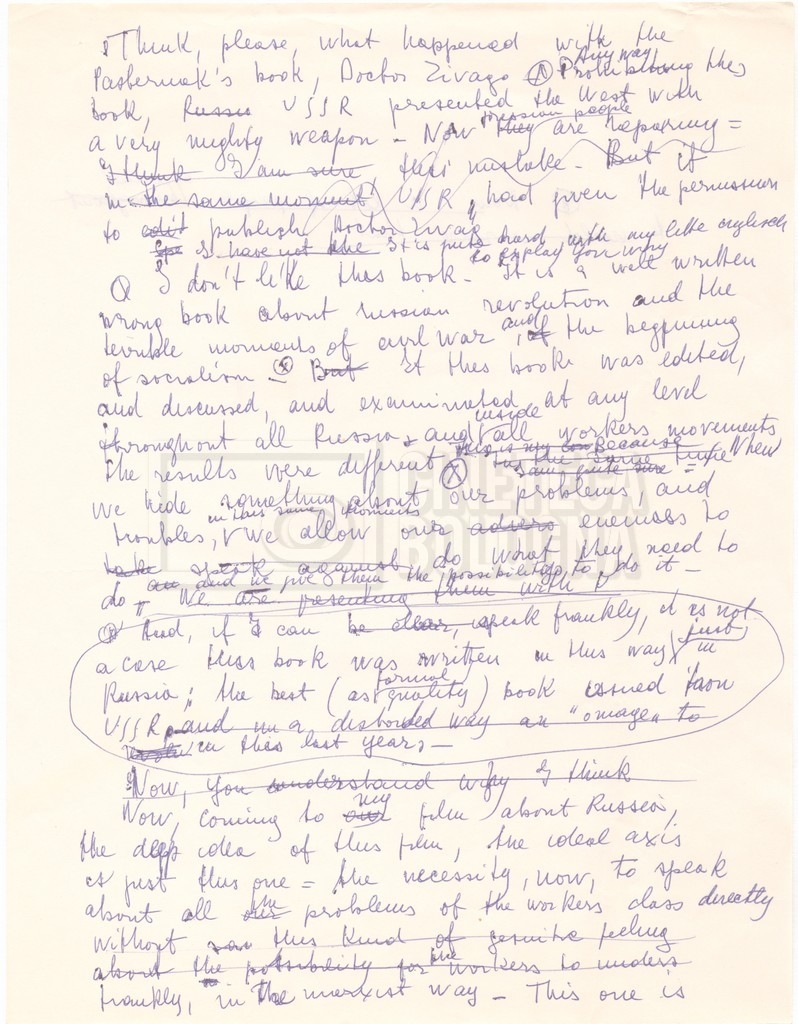 Think, please, what happened with the
Pasternak's book, Doctor Zivago Anyway
Prohibiting this
book, Russia USSR presented the West with
russian people
a very mighty weapon - Now they are repairing =
I think I am sure, this mistake - But if
in the same moment, USSR, had given the permission
to edit publish Doctor Zivago
I have not the It is quite hard with my little englisch
to explay you why
I don't like this book - It is a well written
wrong book about russian revolution and the
terrible moments of civil war, and of the beginning
of socialism - But If this book was edited,
and discussed, and examinated at any level
inside
throughout all Russia, and all workers movements
the results were different Because
the same time When
same quite sure =
we hide something about our problems, and
in this same moments
troubles, we allow our enemies to
speak against, do what they need to
and we give them the possibility to do it -
do = We are presenting them with
And, if I can be clear, speak frankly, it is not
a case this book was written in this way just in
formal
Russia; the best (as quality) book issued from
USSR and in a distorded way an "omage" to
in this last years -
Now, you understand why I think
Now, coming to our my film about Russia,
the deep idea of this film, the ideal axis
is just this one = the necessity, now, to speak
about all our the problems of the workers class directly
without this kind of feeling
about the possibility for the workers to unders
frankly, in the marxist way - This one is
CINETECA
BOLOGNA